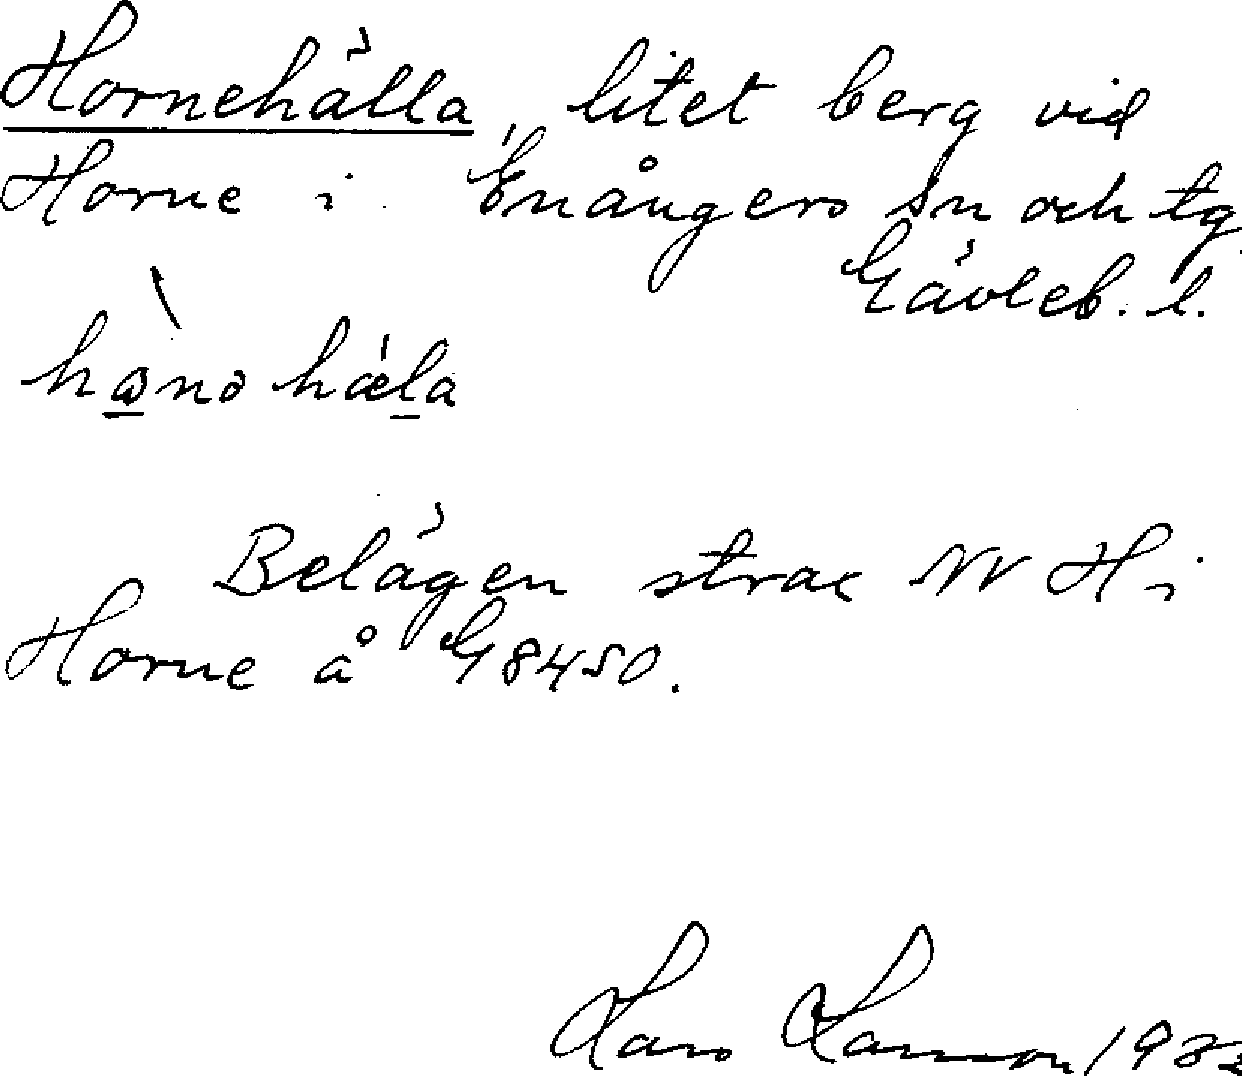 Hornehälla, litet berg vid
Horne i Enångers sn och tg
Gävleb. l.
Belägen strax NV H i
Horne å G 8450.
Lars Larsson